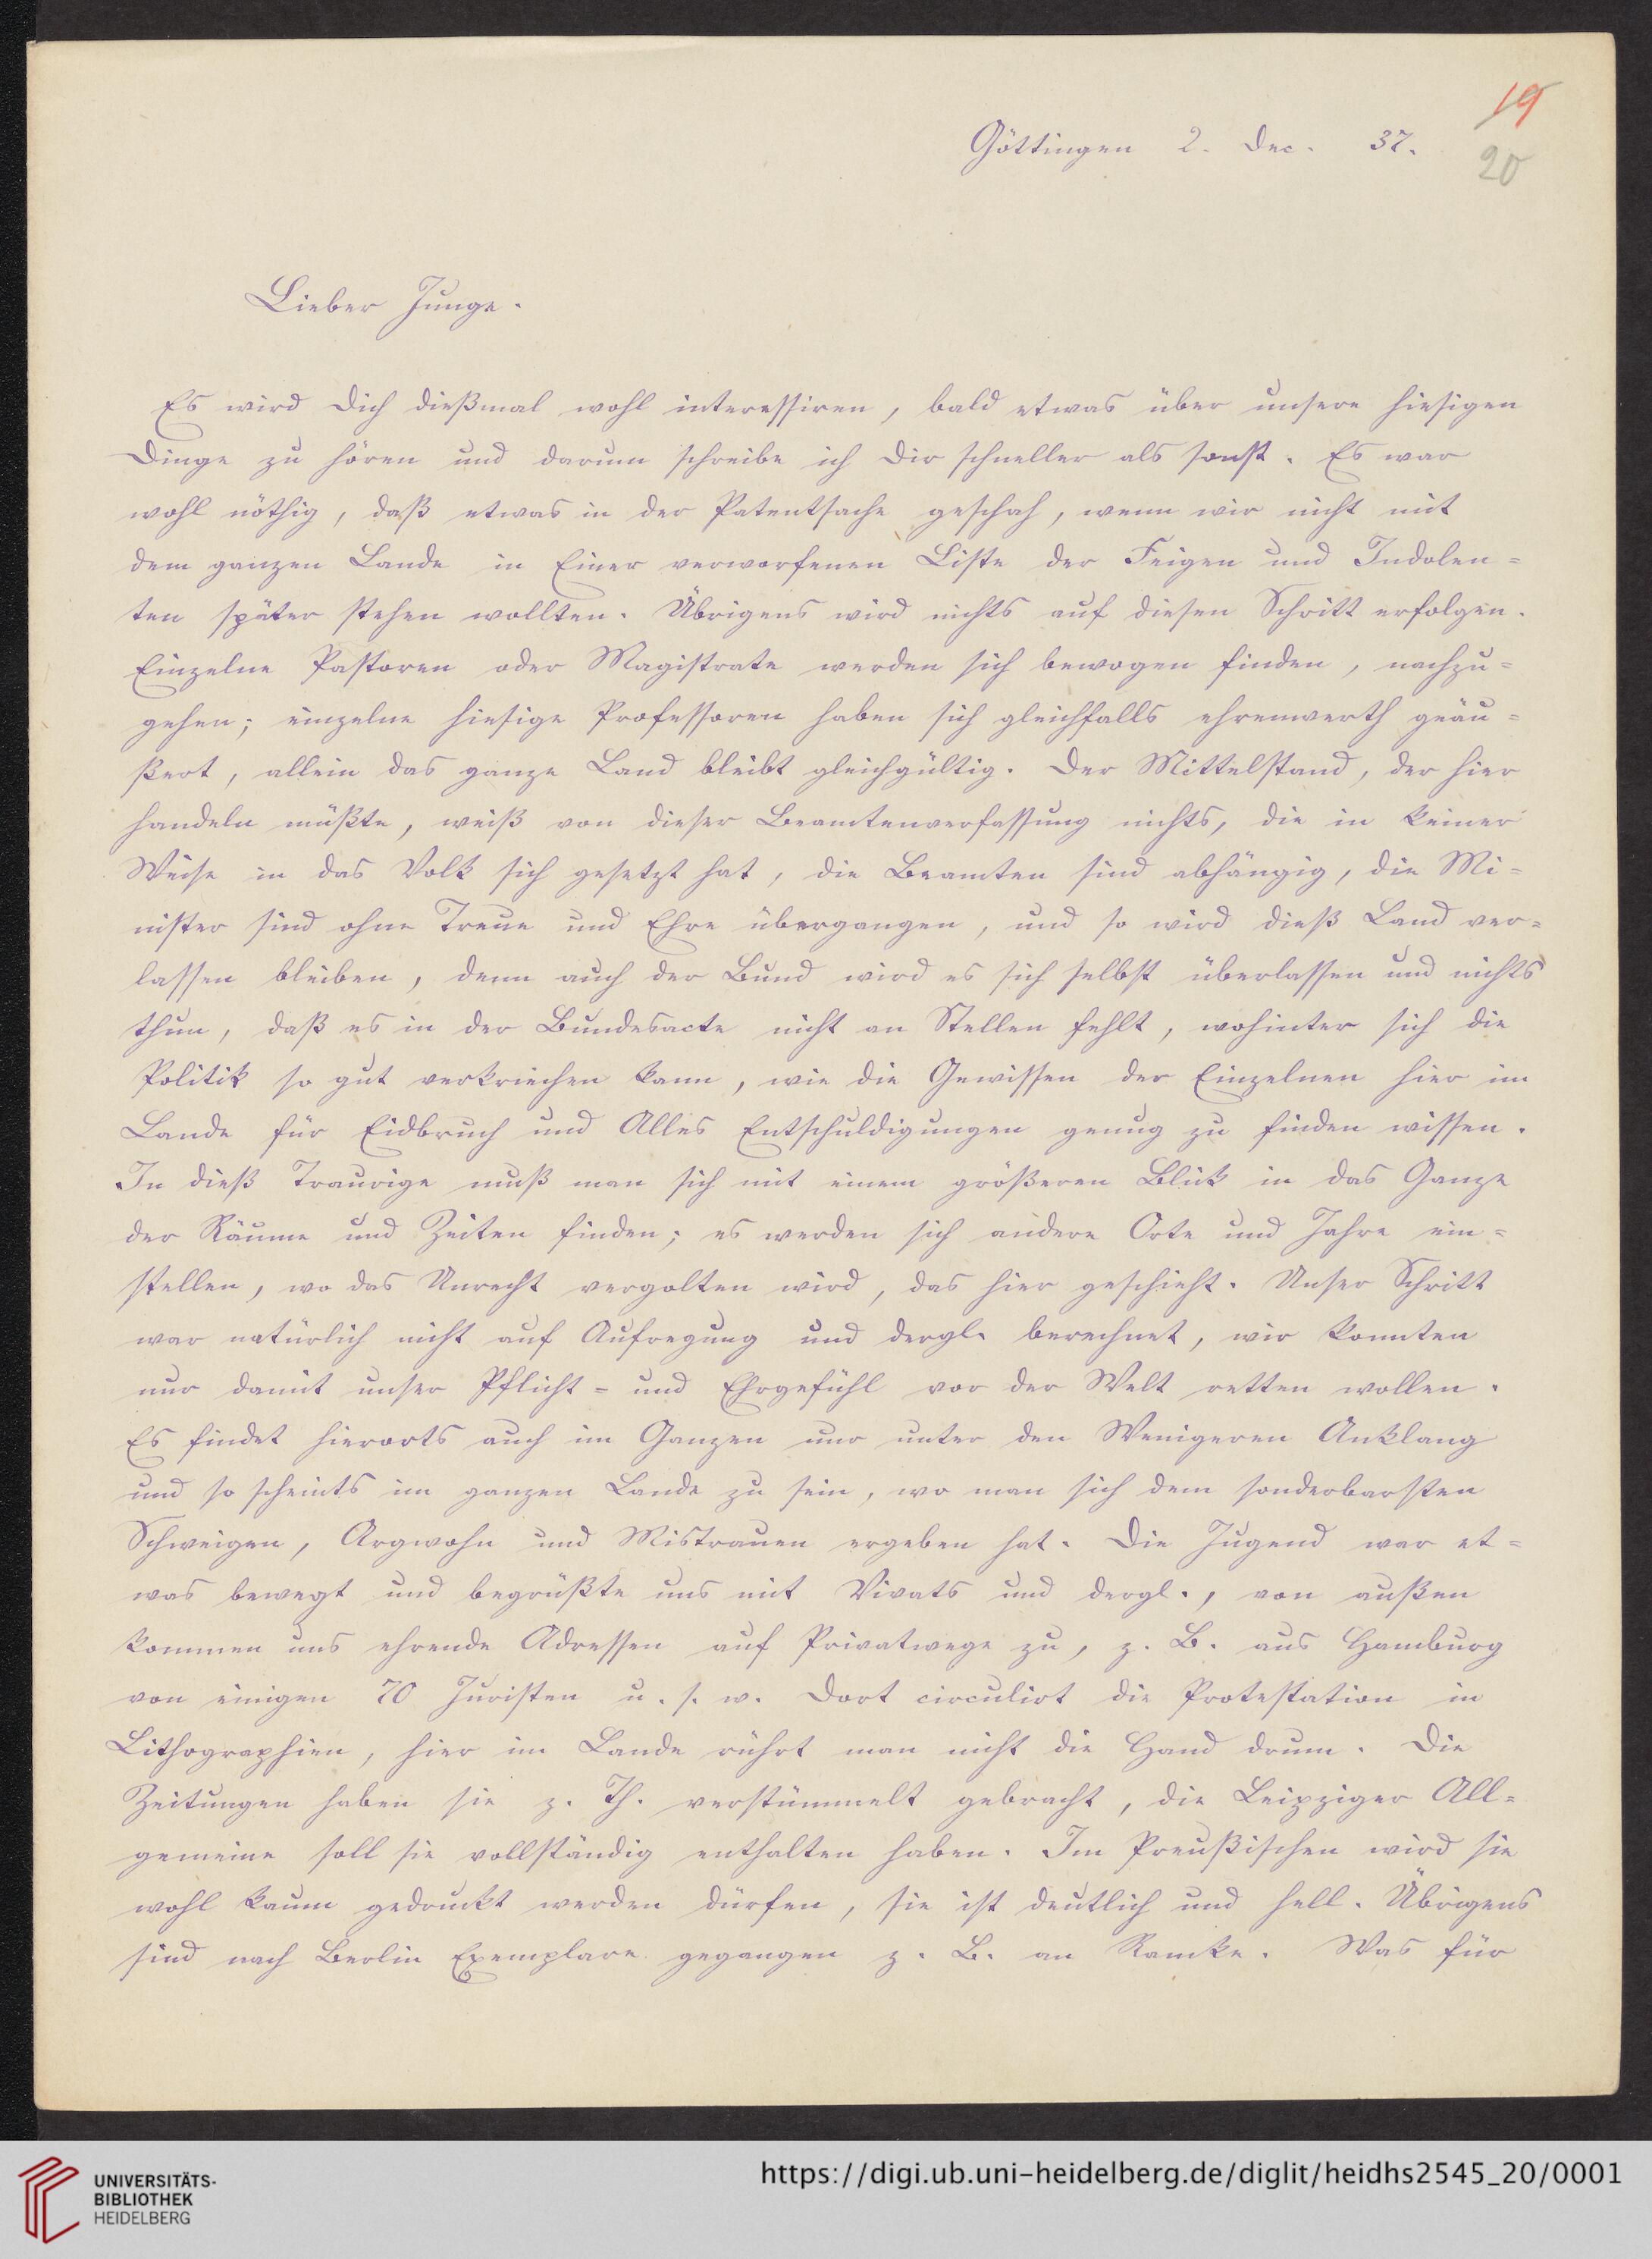 19
Göttingen 2. Dec. 37.
20
Lieber Junge.
Es wird Dich dießmal wohl interessiren, bald etwas über unsere hiesigen
Dinge zu hören und darum schreibe ich Dir schneller als sonst. Es war
wohl nöthig, daß etwas in der Patentsache geschah, wenn wir nicht mit
dem ganzen Lande in Einer verworfenen Liste der Feigen und Indolen=
ten später stehen wollten. Übrigens wird nichts auf diesen Schritt erfolgen.
Einzelne Pastoren oder Magistrate werden sich bewogen finden, nachzu=
gehen; einzelne hiesige Professoren haben sich gleichfalls ehrenwerth geäu=
ßert, allein das ganze Land bleibt gleichgültig. Der Mittelstand, der hier
handeln müßte, weiß von dieser Beamtenverfassung nichts, die in keiner
Weise in das Volk sich gesetzt hat, die Beamten sind abhängig, die Mi=
nister sind ohne Treue und Ehre übergangen, und so wird dieß Land ver=
lassen bleiben, denn auch der Bund wird es sich selbst überlassen und nichts
thun, daß es in der Bundesacte nicht an Stellen fehlt, wohinter sich die
Politik so gut verkriechen kann, wie die Gewissen der Einzelnen hier im
Lande für Eidbruch und Alles Entschuldigungen genug zu finden wissen.
In dieß Traurige muß man sich mit einem größeren Blick in das Ganze
der Räume und Zeiten finden; es werden sich andere Orte und Jahre ein=
stellen, wo das Unrecht vergolten wird, das hier geschieht. Unser Schritt
war natürlich nicht auf Aufregung und dergl. berechnet, wir konnten
nur damit unser Pflicht= und Ehrgefühl vor der Welt retten wollen.
Es findet hierorts auch im Ganzen nur unter den Wenigeren Anklang
und so scheints im ganzen Lande zu sein, wo man sich dem sonderbarsten
Schweigen, Argwohn und Mistrauen ergeben hat. Die Jugend war et=
was bewegt und begrüßte uns mit Vivats und dergl., von außen
kommen uns ehrende Adressen auf Privatwege zu, z. B. aus Hamburg
von einigen 70 Juristen u. s. w. Dort circulirt die Protestation in
Lithographien, hier im Lande rührt man nicht die Hand drum. Die
Zeitungen haben sie z. Th. verstümmelt gebracht, die Leipziger All=
gemeine soll sie vollständig enthalten haben. Im Preußischen wird sie
wohl kaum gedruckt werden dürfen, sie ist deutlich und hell. Übrigens
sind nach Berlin Exemplare gegangen z. B. an Ranke. Was für
UNIVERSITÄTS-
BIBLIOTHEK
HEIDELBERG
https://digi.ub.uni-heidelberg.de/diglit/heidhs2545_20/0001